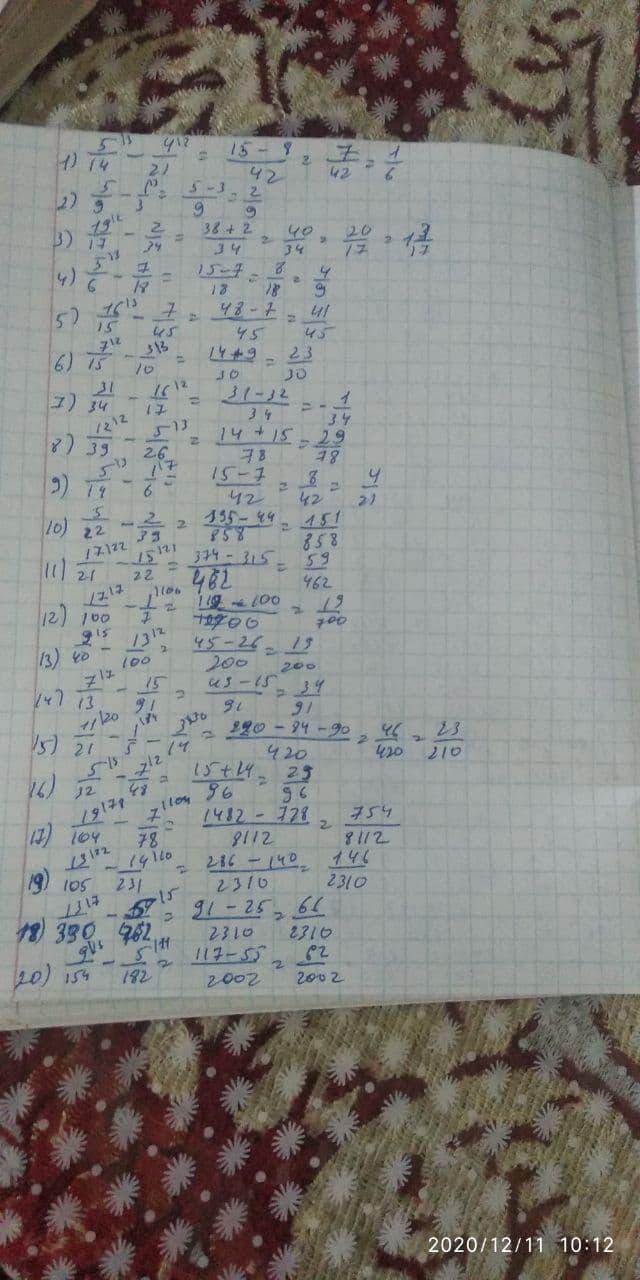 1) 5/14\3 - 4/21\2 = 15-8/42 = 7/42 = 1/6
2) 5/9 - 1/3\3 = 5-3/9 = 2/9
3) 19/17\2 - 2/34 = 38+2/34 = 40/34 = 20/17 = 1 3/17
4) 5/6\3 - 7/18 = 15-7/18 = 8/18 = 4/9
5) 16/15\3 - 7/45 = 48-7/45 = 41/45
6) 7/15\2 - 3/10\3 = 14+9/30 = 23/30
7) 31/34 - 16/17\2 = 31-32/34 = -1/34
8) 12/39\2 - 5/26\3 = 14+15/78 = 29/78
9) 5/14\3 - 1/6\7 = 15-7/42 = 8/42 = 4/21
10) 5/22 - 2/39 = 195-44/858 = 151/858
11) 17/21\22 - 15/22\21 = 374-315/462 = 59/462
12) 17/100\7 - 1/7\100 = 119-100/700 = 19/700
13) 9/40\5 - 13/100\2 = 45-26/200 = 19/200
14) 7/13\7 - 15/91 = 49-15/91 = 34/91
15) 11/21\20 - 1/5\84 - 3/14\30 = 220-84-90/420 = 46/420 = 23/210
16) 5/32\3 - 7/48\2 = 15+14/96 = 29/96
17) 19/104\78 - 7/78\104 = 1482-728/8112 = 754/8112
19) 13/105\22 - 14/231\10 = 286-140/2310 = 146/2310
18) 13/330\7 - 5/462\5 = 91-25/2310 = 66/2310
20) 9/154\13 - 5/182\11 = 117-55/2002 = 62/2002
2020/12/11 10:12